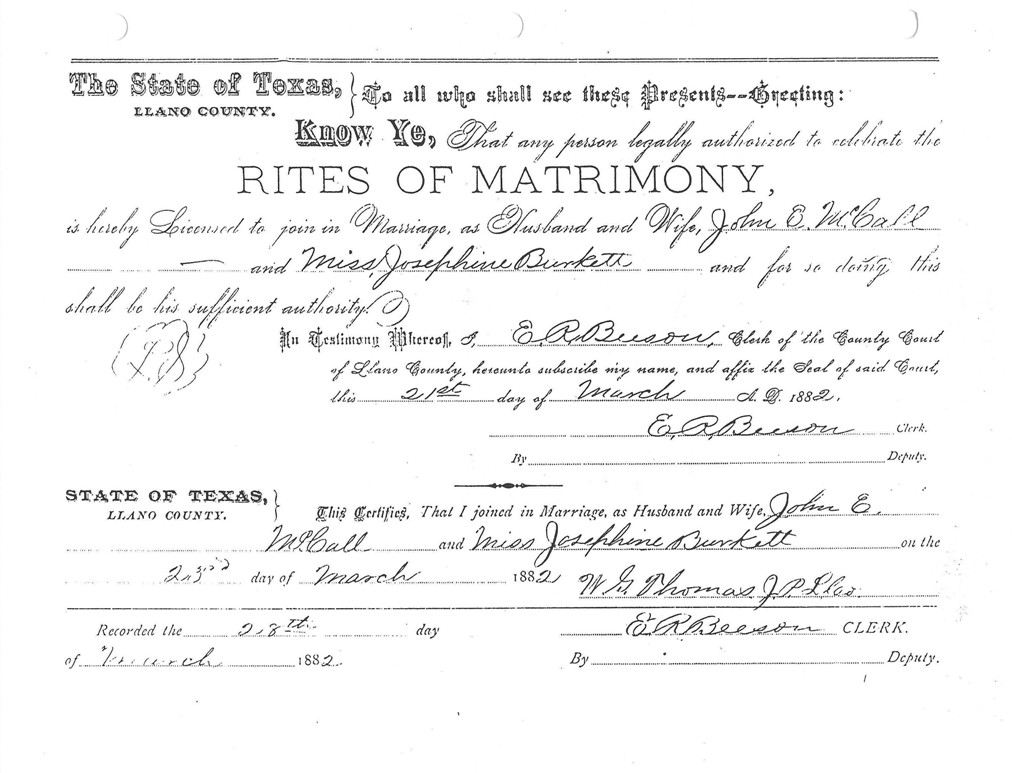 The State of Texas, } To all who shall see these Presents--Greeting:
LLANO COUNTY.
Know Ye, That any person legally authorized to celebrate the
RITES OF MATRIMONY,
is hereby Licensed to join in Marriage, as Husband and Wife, John E. McCall
— and Miss, Josephine Burkett and for so doing this
shall be his sufficient authority.
In Testimony Whereof, I, E. R. Beeson, Clerk of the County Court
of Llano County, hereunto subscribe my name, and affix the Seal of said Court,
this 21st day of March A. D. 1882.
E. R. Beeson Clerk.
By Deputy.
STATE OF TEXAS, }
LLANO COUNTY.
This Certifies, That I joined in Marriage, as Husband and Wife, John E.
McCall and Miss Josephine Burkett on the
23rd day of March 1882
W. G. Thomas J. P. Ll Co.
Recorded the 28th day
E. R. Beeson CLERK.
of March 1882.
By Deputy.